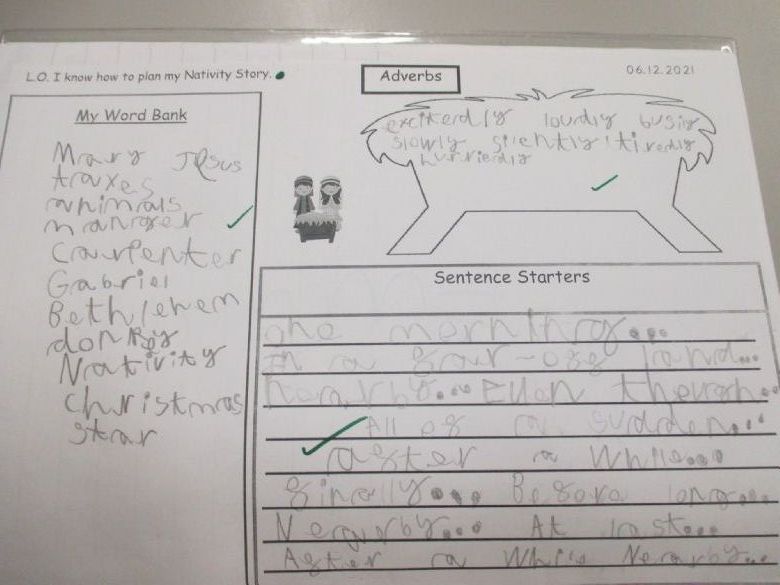 L.O. I know how to plan my Nativity Story.
Adverbs
06.12.2021
My Word Bank
Mary Jesus
taxes
animals
manger
Carpenter
Gabriel
Bethlehem
donkey
Nativity
Christmas
star
excitedly loudly busily
slowly silently tiredly
hurriedly
Sentence Starters
One morning...
In a far-off land...
Nearby... Even though...
All of a sudden...
after a while...
finally... Before long...
Nearby... At last...
After a while Nearby...